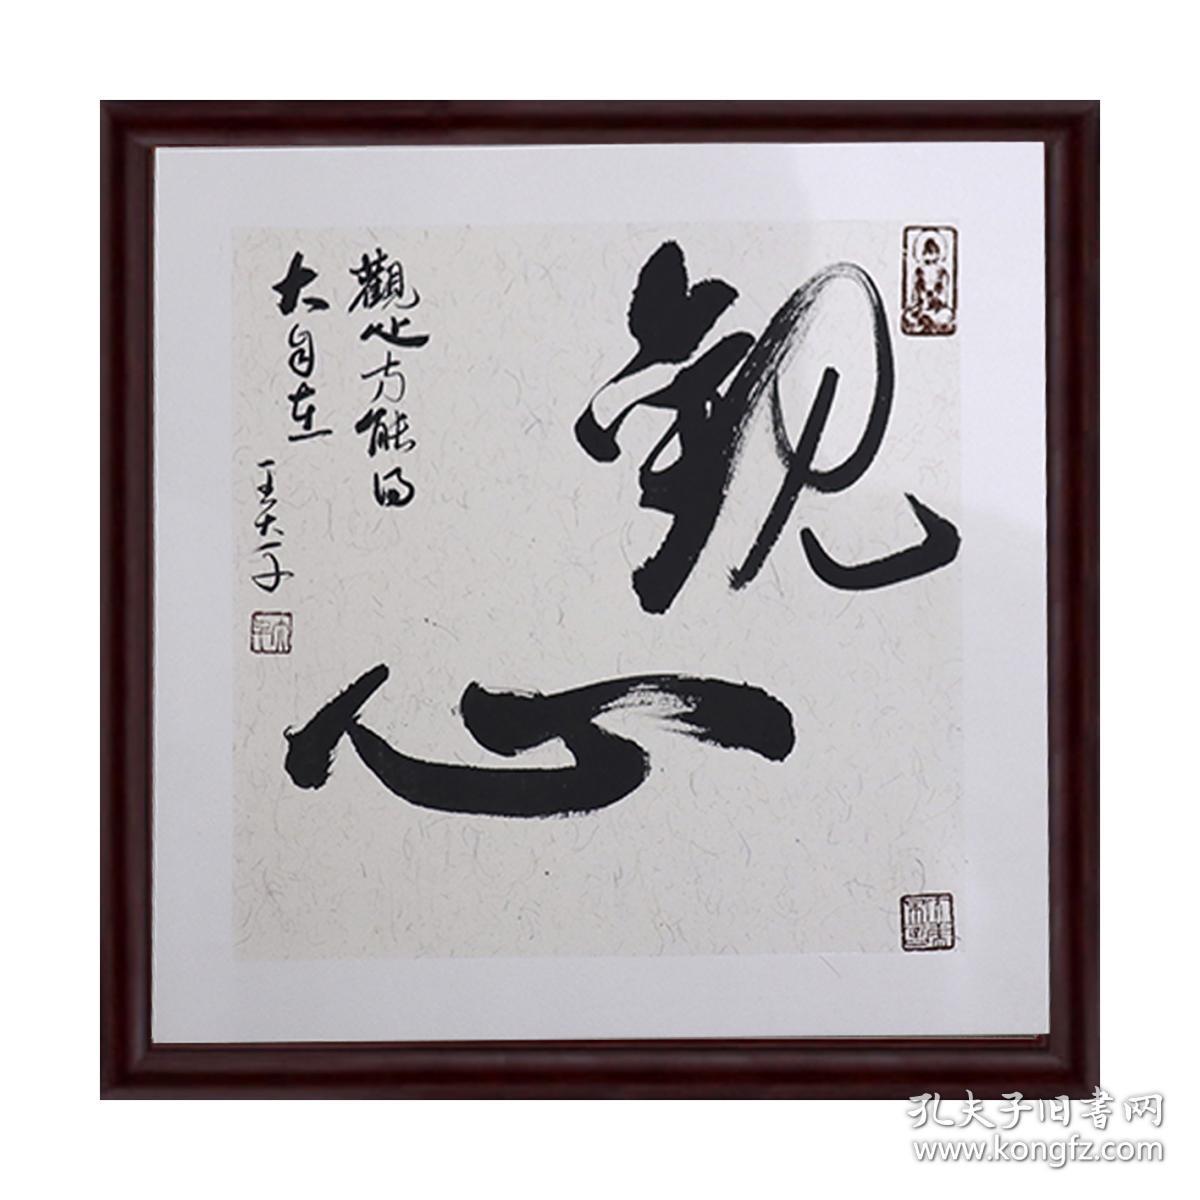 觀心
觀心方能得
大自在
王天子
孔夫子旧书网
www.kongfz.com